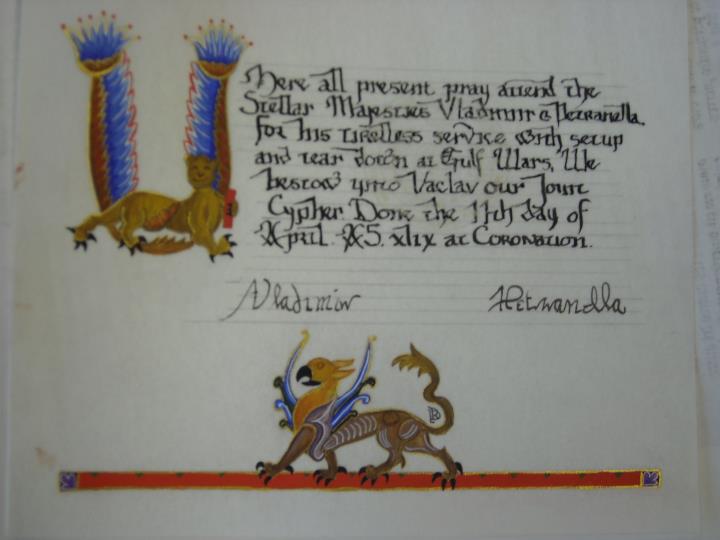 Uhere all present pray attend the
Stellar Majesties Vladimir & Petranella.
for his tireless service with setup
and tear down at Gulf Wars, We
bestow ynto Vaclav our Joint
Cypher. Done the 11th day of
April. AS. xlix at Coronation.
Vladimir Petranella